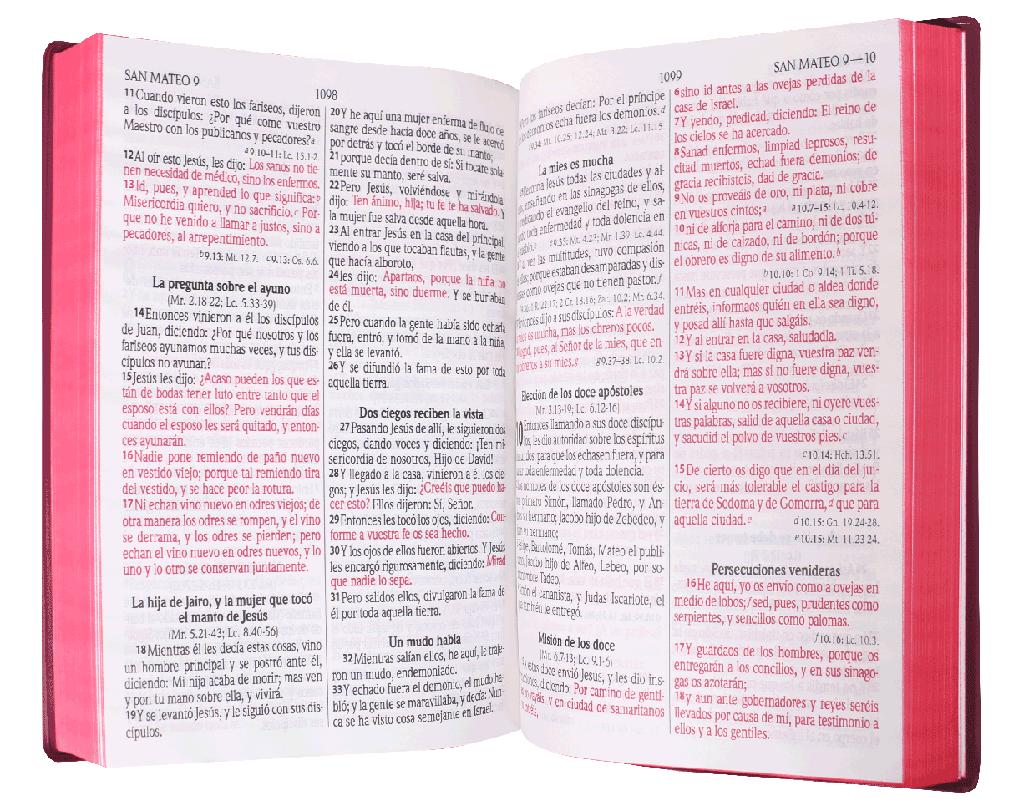 SAN MATEO 9
1098
11Cuando vieron esto los fariseos, dijeron
a los discípulos: ¿Por qué come vuestro
Maestro con los publicanos y pecadores?a
a 9.10-11: Lc. 15.1-2.
12Al oír esto Jesús, les dijo: Los sanos no tie-
nen necesidad de médico, sino los enfermos.
13Id, pues, y aprended lo que significa:b
Misericordia quiero, y no sacrificio.c Por-
que no he venido a llamar a justos, sino a
pecadores, al arrepentimiento.
b9.13: Mt. 12.7. c9.13: Os. 6.6.
La pregunta sobre el ayuno
(Mr. 2.18-22; Lc. 5.33-39)
14Entonces vinieron a él los discípulos
de Juan, diciendo: ¿Por qué nosotros y los
fariseos ayunamos muchas veces, y tus dis-
cípulos no ayunan?
15Jesús les dijo: ¿Acaso pueden los que es-
tán de bodas tener luto entre tanto que el
esposo está con ellos? Pero vendrán días
cuando el esposo les será quitado, y enton-
ces ayunarán.
16Nadie pone remiendo de paño nuevo
en vestido viejo; porque tal remiendo tira
del vestido, y se hace peor la rotura.
17Ni echan vino nuevo en odres viejos; de
otra manera los odres se rompen, y el vino
se derrama, y los odres se pierden; pero
echan el vino nuevo en odres nuevos, y lo
uno y lo otro se conservan juntamente.
La hija de Jairo, y la mujer que tocó
el manto de Jesús
(Mr. 5.21-43; Lc. 8.40-56)
18Mientras él les decía estas cosas, vino
un hombre principal y se postró ante él,
diciendo: Mi hija acaba de morir; mas ven
y pon tu mano sobre ella, y vivirá.
19Y se levantó Jesús, y le siguió con sus dis-
cípulos.
20Y he aquí una mujer enferma de flujo de
sangre desde hacía doce años, se le acercó
por detrás y tocó el borde de su manto;
21porque decía dentro de sí: Si tocare sola-
mente su manto, seré salva.
22Pero Jesús, volviéndose y mirándola,
dijo: Ten ánimo, hija; tu fe te ha salvado. Y
la mujer fue salva desde aquella hora.
23Al entrar Jesús en la casa del principal,
viendo a los que tocaban flautas, y la gente
que hacía alboroto,
24les dijo: Apartaos, porque la niña no
está muerta, sino duerme. Y se burlaban
de él.
25Pero cuando la gente había sido echada
fuera, entró, y tomó de la mano a la niña,
y ella se levantó.
26Y se difundió la fama de esto por toda
aquella tierra.
Dos ciegos reciben la vista
27Pasando Jesús de allí, le siguieron dos
ciegos, dando voces y diciendo: ¡Ten mi-
sericordia de nosotros, Hijo de David!
28Y llegado a la casa, vinieron a él los cie-
gos; y Jesús les dijo: ¿Creéis que puedo ha-
cer esto? Ellos dijeron: Sí, Señor.
29Entonces les tocó los ojos, diciendo: Con-
forme a vuestra fe os sea hecho.
30Y los ojos de ellos fueron abiertos. Y Jesús
les encargó rigurosamente, diciendo: Mirad
que nadie lo sepa.
31Pero salidos ellos, divulgaron la fama de
él por toda aquella tierra.
Un mudo habla
32Mientras salían ellos, he aquí, le traje-
ron un mudo, endemoniado.
33Y echado fuera el demonio, el mudo ha-
bló; y la gente se maravillaba, y decía: Nun-
ca se ha visto cosa semejante en Israel.
1099
SAN MATEO 9—10
los fariseos decían: Por el príncipe
demonios echa fuera los demonios.d
9.34: Mt. 10.25; 12.24; Mr. 3.22; Lc. 11.15.
La mies es mucha
Jesús todas las ciudades y al-
enseñando en las sinagogas de ellos,
el evangelio del reino, y sa-
toda enfermedad y toda dolencia en
9.35: Mt. 4.23; Mr. 1.39; Lc. 4.44.
ver las multitudes, tuvo compasión
porque estaban desamparadas y dis-
como ovejas que no tienen pastor.f
22.17; 2 Cr. 18.16; Zac. 10.2; Mr. 6.34.
Entonces dijo a sus discípulos: A la verdad
mies es mucha, mas los obreros pocos.
pues, al Señor de la mies, que en-
obreros a su mies.g g9.37-38: Lc. 10.2.
Elección de los doce apóstoles
(Mr. 3.13-19; Lc. 6.12-16)
10 Entonces llamando a sus doce discípu-
los, les dio autoridad sobre los espíritus
para que los echasen fuera, y para
toda enfermedad y toda dolencia.
nombres de los doce apóstoles son és-
primero Simón, llamado Pedro, y An-
hermano; Jacobo hijo de Zebedeo, y
hermano;
Felipe, Bartolomé, Tomás, Mateo el publi-
Jacobo hijo de Alfeo, Lebeo, por so-
Tadeo,
el cananista, y Judas Iscariote, el
también le entregó.
Misión de los doce
(Mr. 6.7-13; Lc. 9.1-6)
estos doce envió Jesús, y les dio ins-
diciendo: Por camino de genti-
vayáis, y en ciudad de samaritanos
6sino id antes a las ovejas perdidas de la
casa de Israel.
7Y yendo, predicad, diciendo: El reino de
los cielos se ha acercado.
8Sanad enfermos, limpiad leprosos, resu-
citad muertos, echad fuera demonios; de
gracia recibisteis, dad de gracia.
9No os proveáis de oro, ni plata, ni cobre
en vuestros cintos;a a10.7-15: Lc. 10.4-12.
10ni de alforja para el camino, ni de dos tú-
nicas, ni de calzado, ni de bordón; porque
el obrero es digno de su alimento.b
b10.10: 1 Co. 9.14; 1 Ti. 5.18.
11Mas en cualquier ciudad o aldea donde
entréis, informaos quién en ella sea digno,
y posad allí hasta que salgáis.
12Y al entrar en la casa, saludadla.
13Y si la casa fuere digna, vuestra paz ven-
drá sobre ella; mas si no fuere digna, vues-
tra paz se volverá a vosotros.
14Y si alguno no os recibiere, ni oyere vues-
tras palabras, salid de aquella casa o ciudad,
y sacudid el polvo de vuestros pies.c
c10.14: Hch. 13.51.
15De cierto os digo que en el día del jui-
cio, será más tolerable el castigo para la
tierra de Sodoma y de Gomorra,d que para
aquella ciudad.e d10.15: Gn. 19.24-28.
e10.15: Mt. 11.23-24.
Persecuciones venideras
16He aquí, yo os envío como a ovejas en
medio de lobos;f sed, pues, prudentes como
serpientes, y sencillos como palomas.
f10.16: Lc. 10.3.
17Y guardaos de los hombres, porque os
entregarán a los concilios, y en sus sinago-
gas os azotarán;
18y aun ante gobernadores y reyes seréis
llevados por causa de mí, para testimonio a
ellos y a los gentiles.